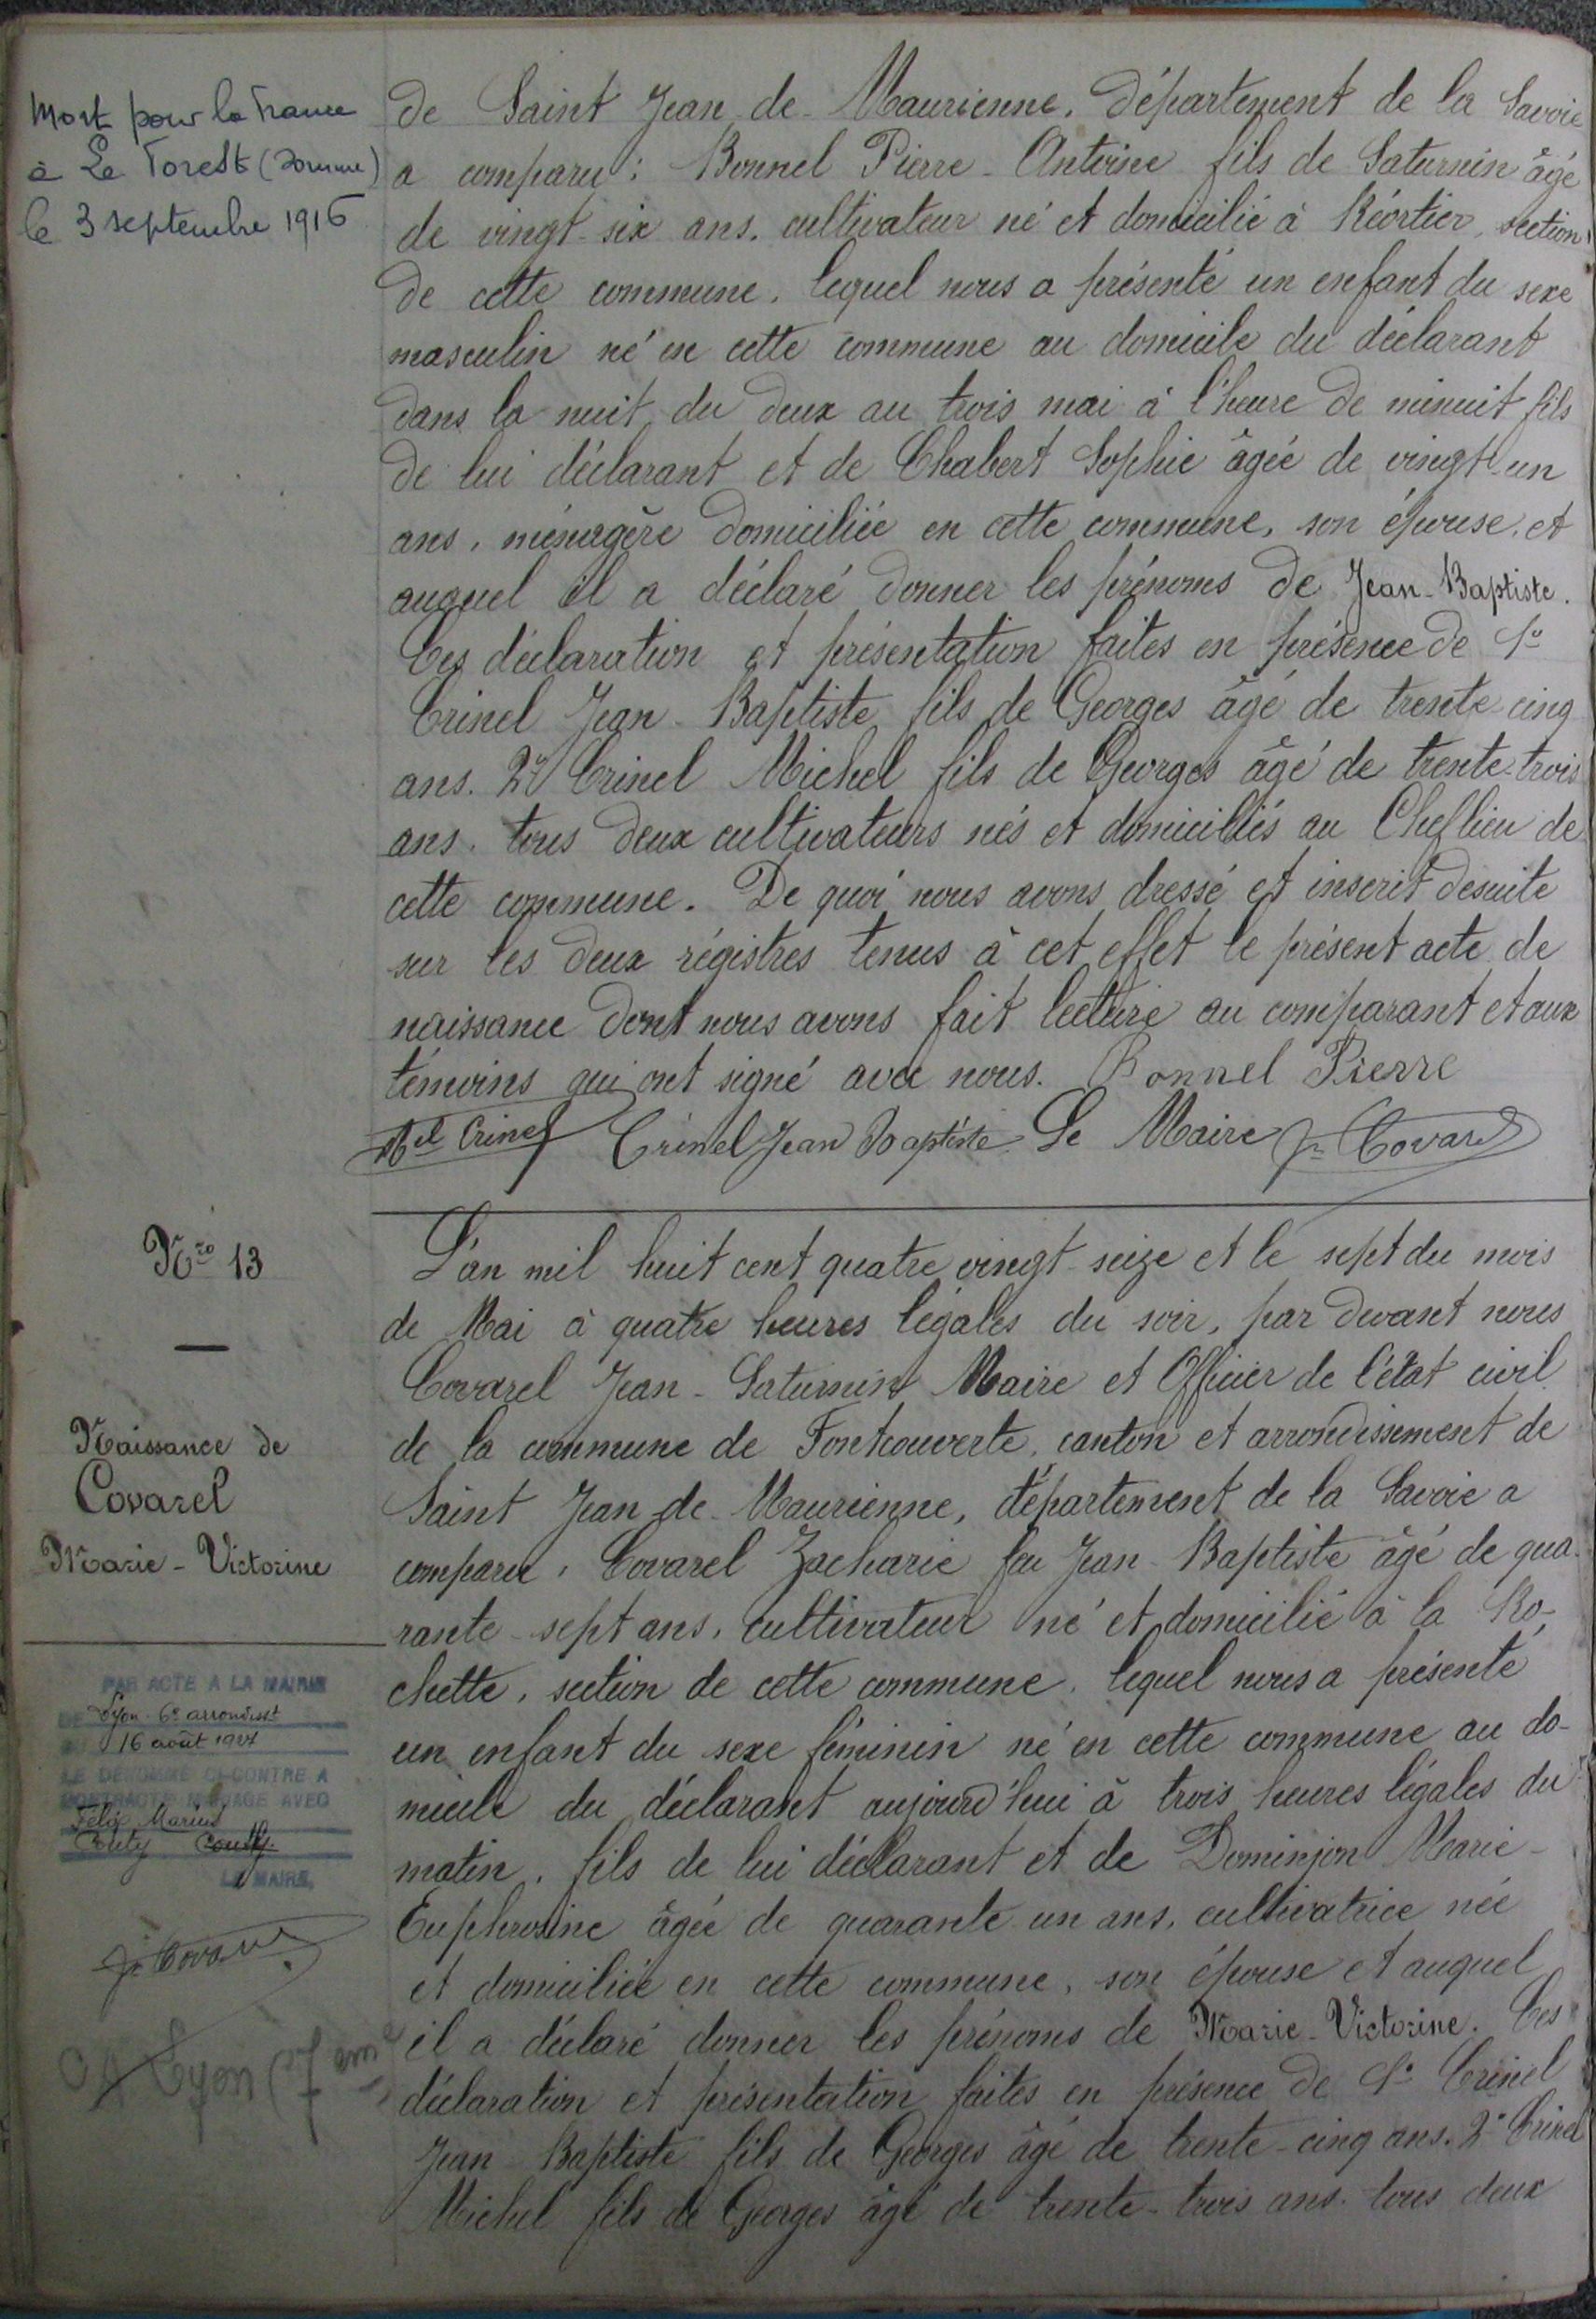 Mort pour la France
à Le Forest (Somme)
le 3 septembre 1916
de Saint Jean-de-Maurienne, département de la Savoie
a comparu : Bonnel Pierre-Antoine fils de Saturnin âgé
de vingt-six ans, cultivateur né et domicilié à Réortier, section
de cette commune, lequel nous a présenté un enfant du sexe
masculin né en cette commune au domicile du déclarant
dans la nuit du deux au trois mai à l'heure de minuit fils
de lui déclarant et de Chabert Sophie âgée de vingt-un
ans, ménagère domiciliée en cette commune, son épouse, et
auquel il a déclaré donner les prénoms de Jean-Baptiste.
Ces déclaration et présentation faites en présence de 1º
Crinel Jean-Baptiste fils de Georges âgé de trente-cinq
ans. 2º Crinel Michel fils de Georges âgé de trente-trois
ans. tous deux cultivateurs nés et domiciliés au Cheflieu de
cette commune. De quoi nous avons dressé et inscrit desuite
sur les deux régistres tenus à cet effet le présent acte de
naissance dont nous avons fait lecture au comparant et aux
témoins qui ont signé avec nous. Bonnel Pierre
Mel Crinel Crinel Jean Baptiste Le Maire Jn Covarel
Nro 13
Naissance de
Covarel
Marie-Victorine
L'an mil huit cent quatre vingt-seize et le sept du mois
de Mai à quatre heures légales du soir, par devant nous
Covarel Jean-Saturnin Maire et Officier de l'état civil
de la commune de Fontcouverte, canton et arrondissement de
Saint Jean-de-Maurienne, département de la Savoie a
comparu, Covarel Zacharie feu Jean-Baptiste âgé de qua-
rante-sept ans, cultivateur né et domicilié à la Ro-
chette, section de cette commune, lequel nous a présenté
un enfant du sexe féminin né en cette commune au do-
micile du déclarant aujourd'hui à trois heures légales du
matin, fils de lui déclarant et de Dominjon Marie-
Euphrosine âgée de quarante-un ans, cultivatrice née
et domiciliée en cette commune, son épouse et auquel
il a déclaré donner les prénoms de Marie-Victorine. Ces
déclaration et présentation faites en présence de 1º Crinel
Jean-Baptiste fils de Georges âgé de trente-cinq ans. 2º Crinel
Michel fils de Georges âgé de trente-trois ans. tous deux
PAR ACTE A LA MAIRIE
DE Lyon 6e arrondisst
16 août 1924
LE DÉNOMMÉ CI-CONTRE A
CONTRACTÉ MARIAGE AVEC
Félix Marius
Couty Couty.
LE MAIRE,
Jn Covarel
Lyon (7eme